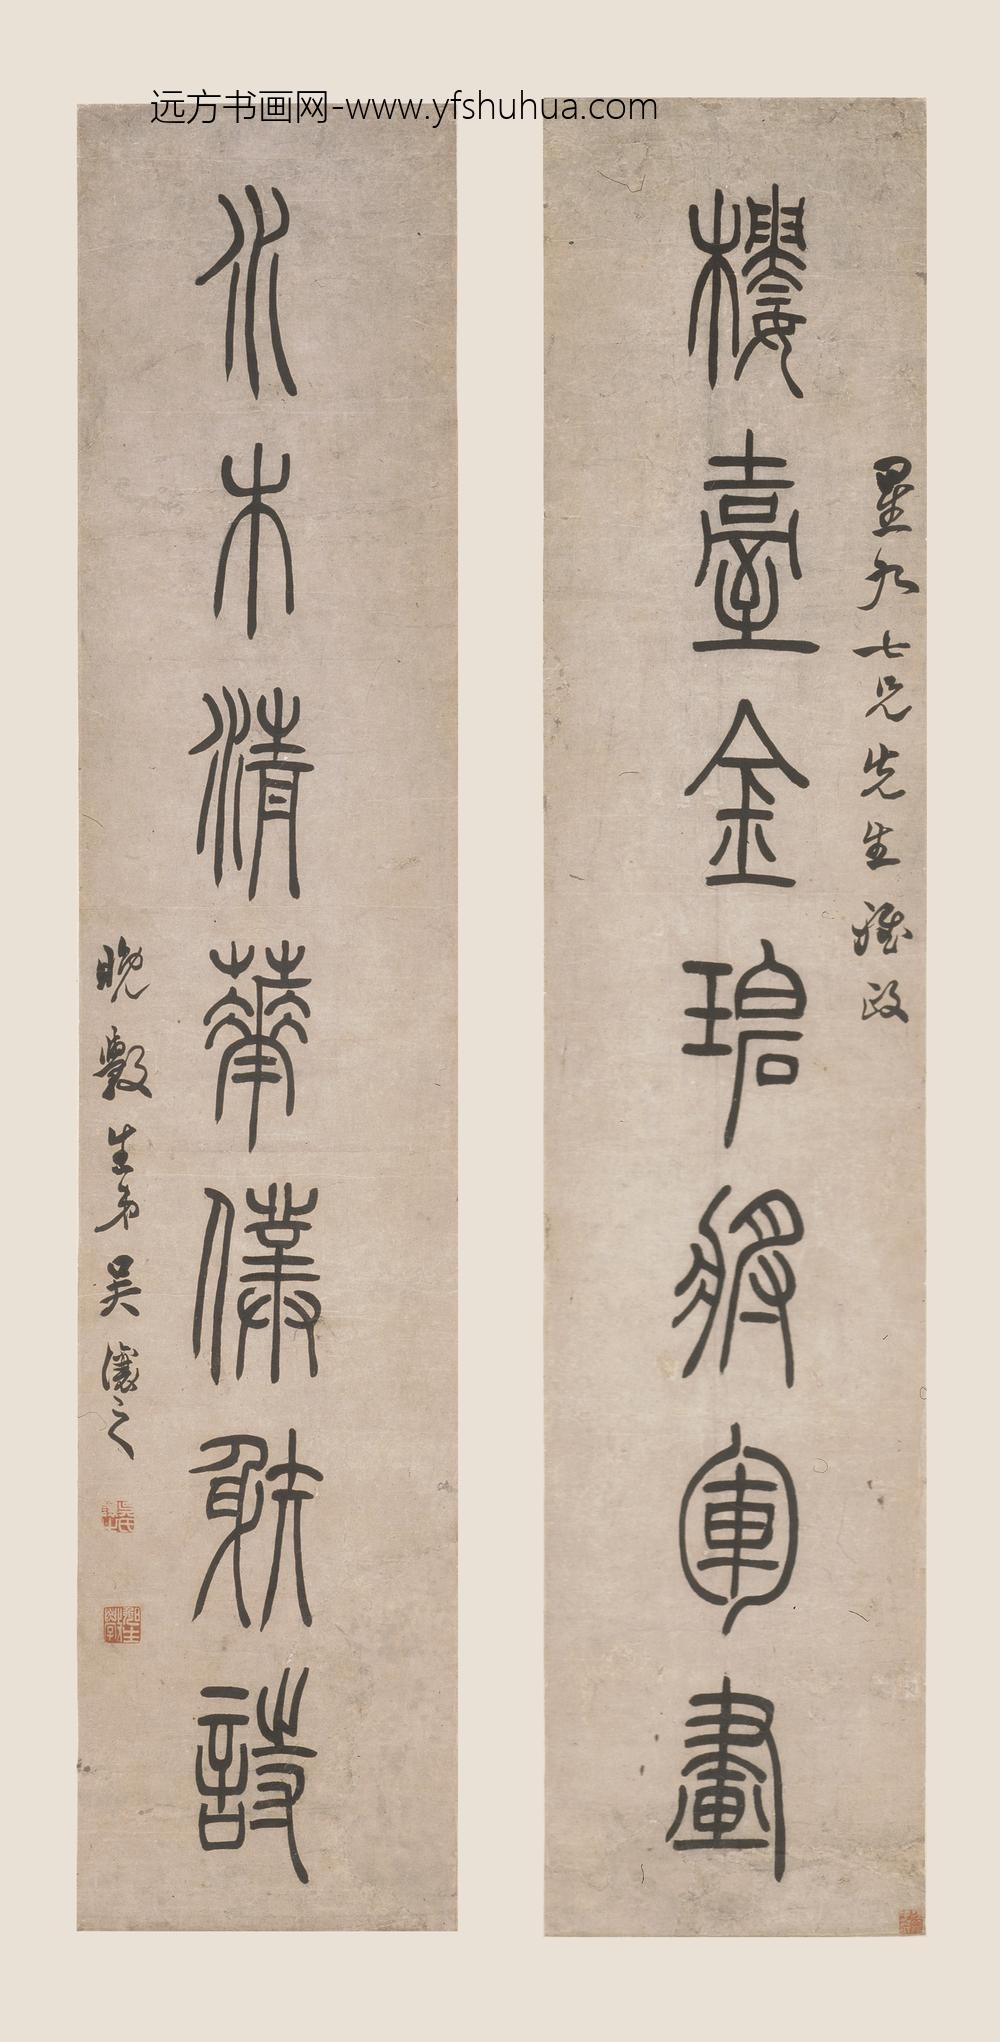 远方书画网-www.yfshuhua.com
星九七兄先生雅政
樓臺金碧將軍畫
水木清華僕射詩
晚斅生弟吴讓之